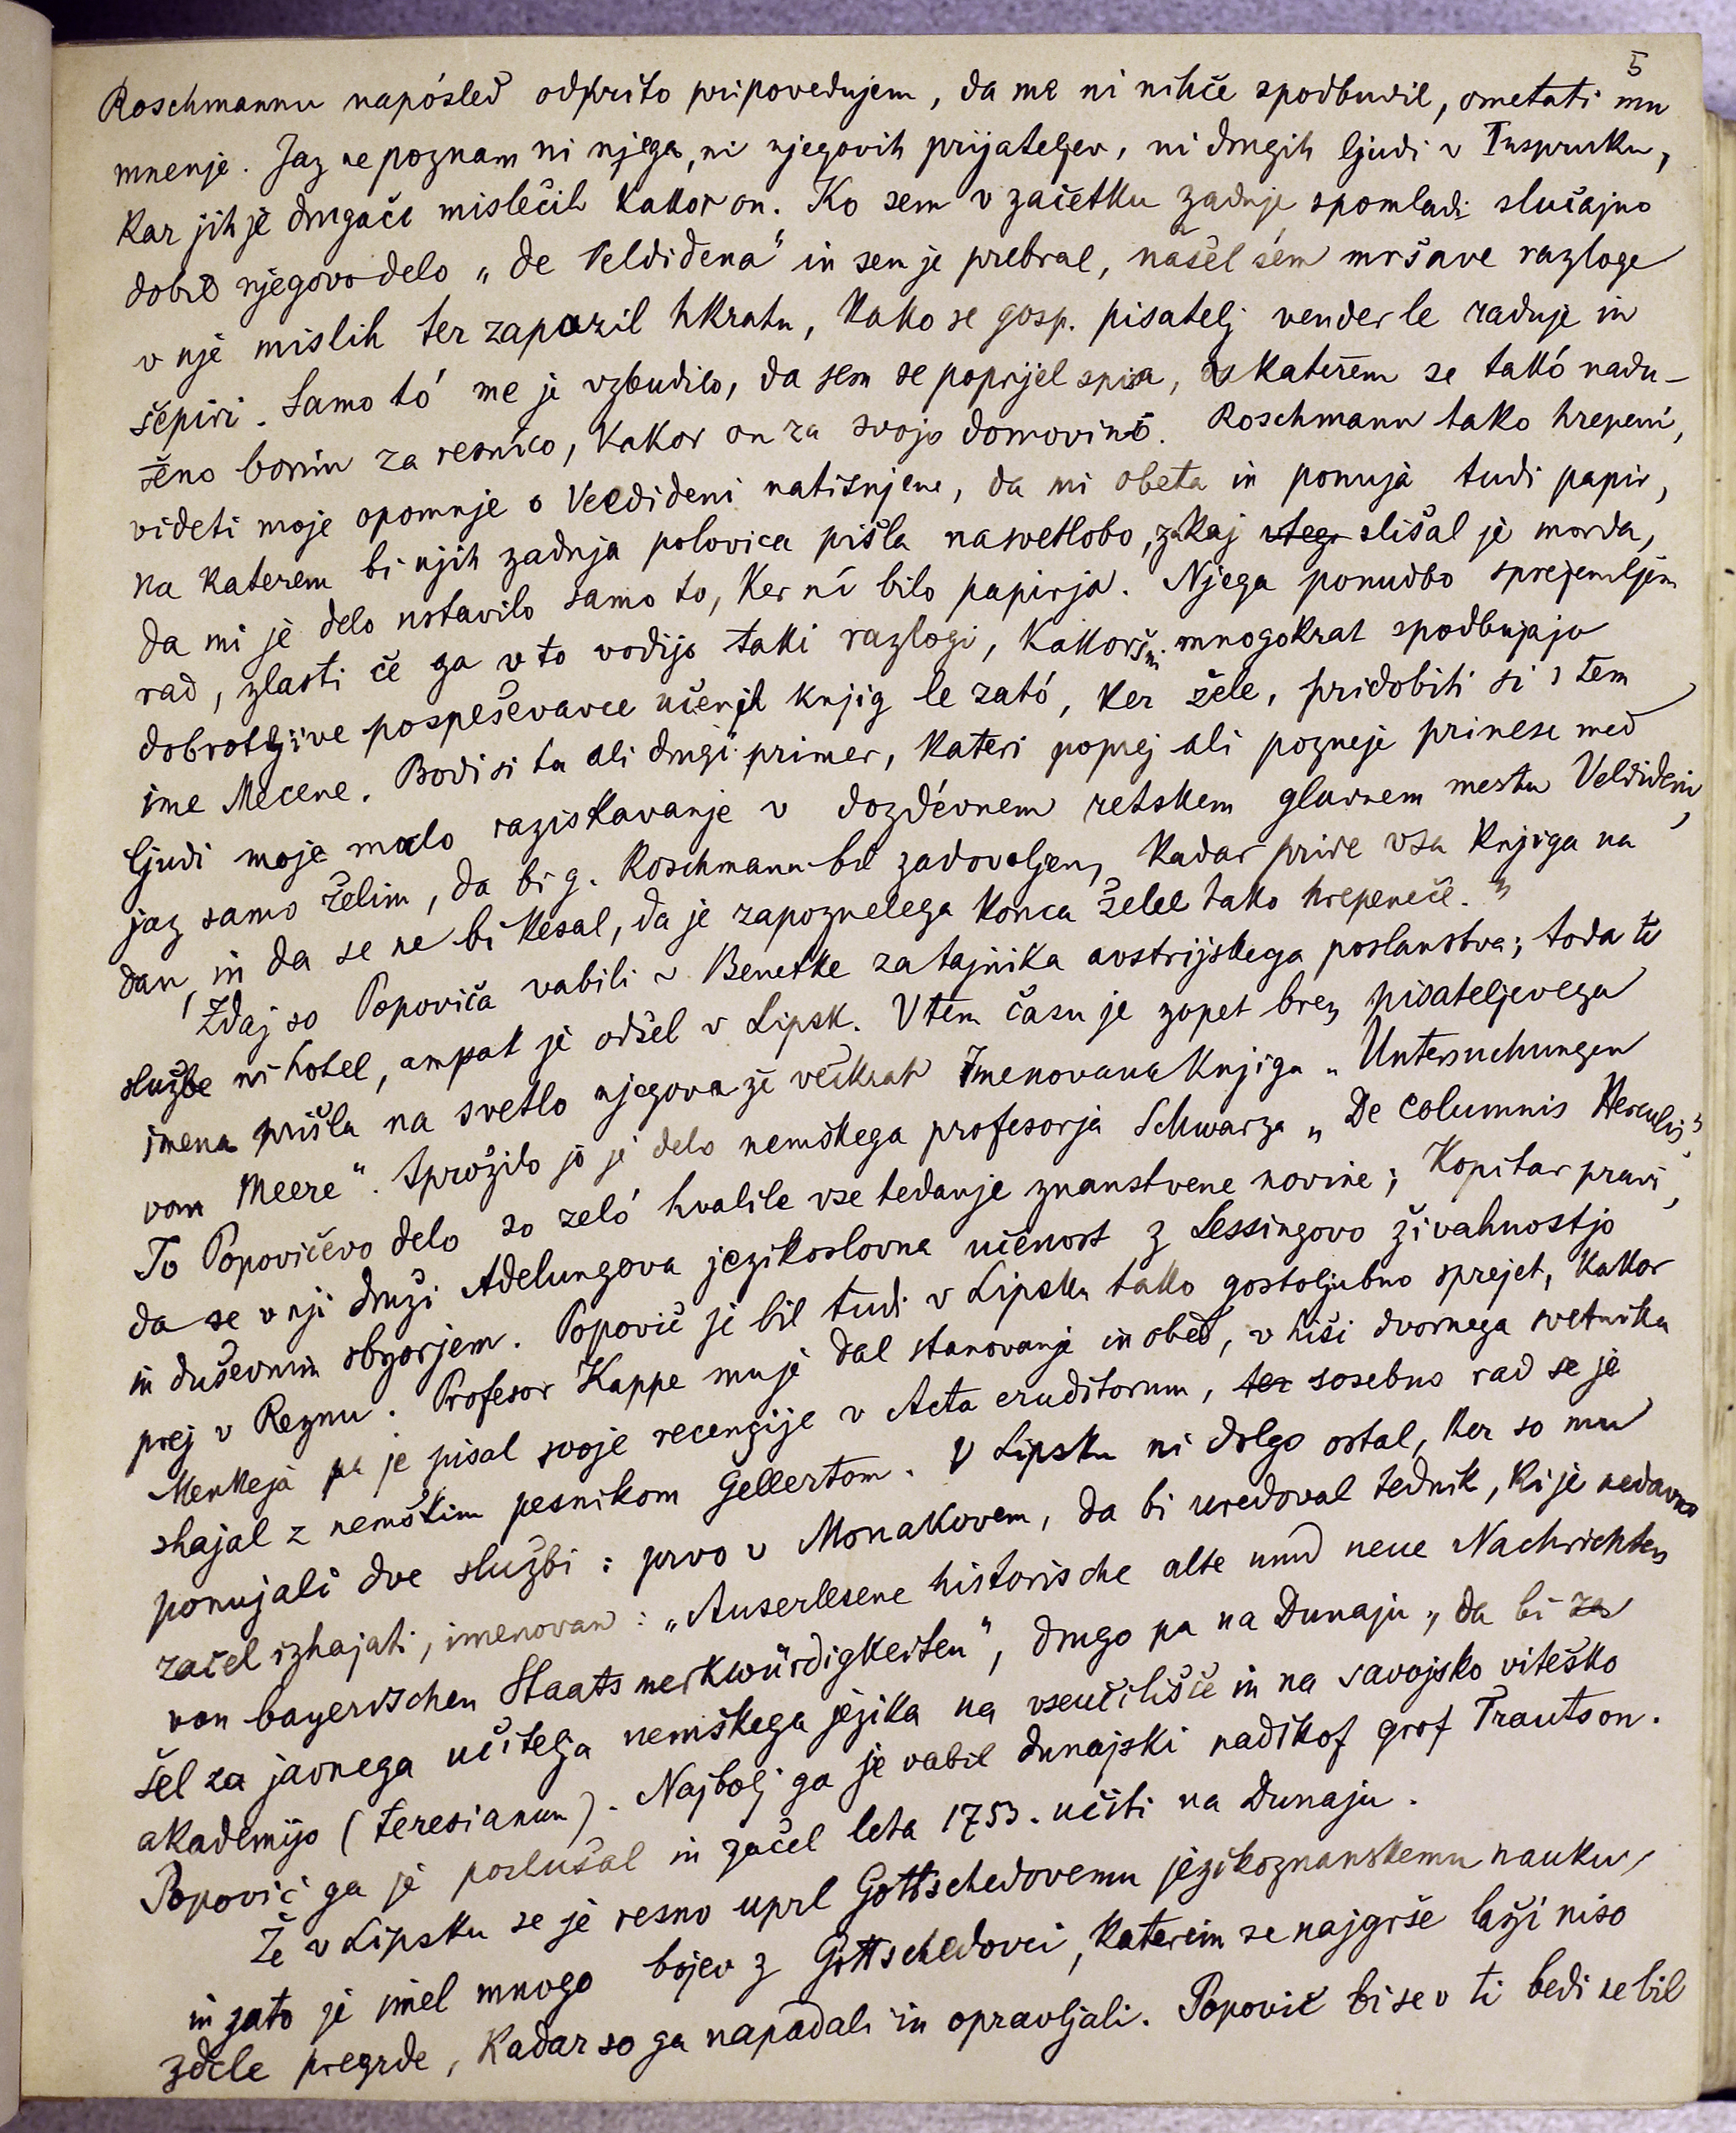 5
Roschmannu napósled odkrito pripovedujem, da me ni nihče spodbudil, ometati mu
mnenje. Jaz ne poznam ni njega, ni njegovih prijateljev, ni drugih ljudi v Inspruku,
kar jih je drugače mislečih kakor on. Ko sem v začetku zadnje spomladi slučajno
dobil njegovo delo „de Veldidena" in sem je prebral, našel sem mršave razloge
v njé mislih ter zapazil hkratu, kako se gosp. pisatelj vender le raduje in
šepiri. Samo tó me je vzbudilo, da sem se poprijel spisa, v katerem se takó nadu-
šeno borim za resnico, kakor on za svojo domovino. Roschmann tako hrepeni,
videti moje opomnje o Veldideni natisnjene, da mi obeta in ponuja tudi papir,
na katerem bi njih zadnja polovica pišla na svetlobo, zakaj slišal je morda,
da mi je delo ustavilo samo to, ker ni bilo papirja. Njega ponudbo sprejemljem
rad, zlasti če ga v to vodijo taki razlogi, kakoršni mnogokrat spodbujajo
dobrotljive pospeševavce učenih knjig le zató, ker žele, pridobiti si s tem
ime Mecene. Bodi si ta ali drugi primer, kateri poprej ali pozneje prinese med
ljudi moje malo raziskavanje v dozdévnem retskem glavnem mestu Veldideni,
jaz samo želim, da bi g. Roschmann bil zadovoljen, kadar pride vsa knjiga na
dan, in da se ne bi kesal, da je zapoznelega konca želel tako hrepeneče."
Zdaj so Popoviča vabili v Benetke za tajnika avstrijskega poslanstva; toda te
službe ni hotel, ampak je odšel v Lipsk. V tem času je zopet brez pisateljevega
imena prišla na svetlo njegova že večkrat imenovana knjiga „Untersuchungen
vom Meere". Sprožilo jo je delo nemškega profesorja Schwarza „De columnis Herculis".
To Popovičevo delo so zeló hvalile vse tedanje znanstvene novine; Kopitar pravi,
da se v nji druži Adelungova jezikoslovna učenost z Lessingovo živahnostjo
in duševnim obzorjem. Popovič je bil tudi v Lipsku tako gostoljubno sprejet, kakor
prej v Reznu. Profesor Kappe mu je dal stanovanje in obed, v hiši dvornega svetnika
Menkeja pa je pisal svoje recenzije v Acta eruditorum, ter sosebno rad se je
shajal z nemškim pesnikom Gellertom. V Lipsku ni dolgo ostal, ker so mu
ponujali dve službi: prvo v Monakovem, da bi uredoval tednik, ki je nedavno
začel izhajati, imenovan: „Auserlesene historische alte und neue Nachrichten
von bayerischen Staatsmerkwürdigkeiten", drugo pa na Dunaju, da bi za
šel za javnega učitelja nemškega jezika na vseučilišče in na savojsko viteško
akademijo (teresianum). Najbolj ga je vabil dunajski nadškof grof Trautson.
Popovič ga je poslušal in začel leta 1753. učiti na Dunaju.
Že v Lipsku se je resno uprl Gottschedovemu jezikoznanskemu nauku,
in zato je imel mnogo bojev z Gottschedovci, katerim se najgrše laži niso
zdele pregrde, kadar so ga napadali in opravljali. Popovič bi se v ti bedi ne bil